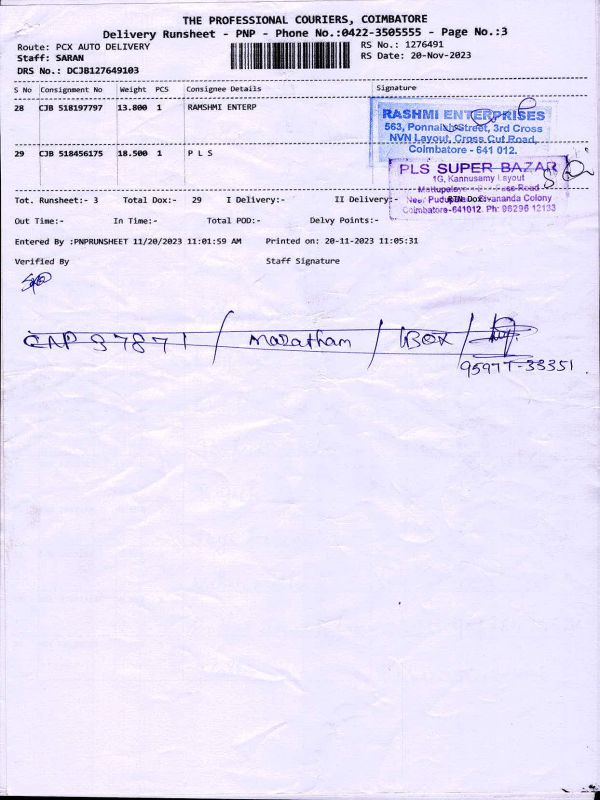 THE PROFESSIONAL COURIERS, COIMBATORE
Delivery Runsheet - PNP - Phone No.:0422-3505555 - Page No.:3
Route: PCX AUTO DELIVERY
RS No.: 1276491
Staff: SARAN
RS Date: 20-Nov-2023
DRS No.: DCJB127649103
S No Consignment No Weight PCS Consignee Details Signature
28 CJB 518197797 13.800 1 RAMSHMI ENTERP
RASHMI ENTERPRISES
563, Ponnaiah Street, 3rd Cross
NVN Layout, Cross Cut Road,
Coimbatore - 641 012.
29 CJB 518456175 18.500 1 P L S
PLS SUPER BAZAR
1G, Kannusamy Layout
Road
Sivananda Colony
Coimbatore-641012. Ph: 96296 12133
Tot. Runsheet:- 3 Total Dox:- 29 I Delivery:- II Delivery:- RTN Dox:-
Out Time:- In Time:- Total POD:- Delvy Points:-
Entered By :PNPRUNSHEET 11/20/2023 11:01:59 AM Printed on: 20-11-2023 11:05:31
Verified By Staff Signature
CAP 37871 / maratham / BOX /
95977-33351